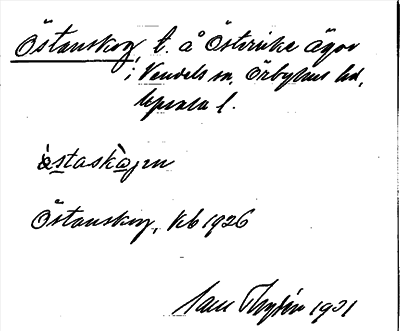 Östanskog, t. å Österike ägor
i Vendels sn, Örbyhus hd,
Uppsala l.
òstaskògen
Östanskog, kb 1926
1931